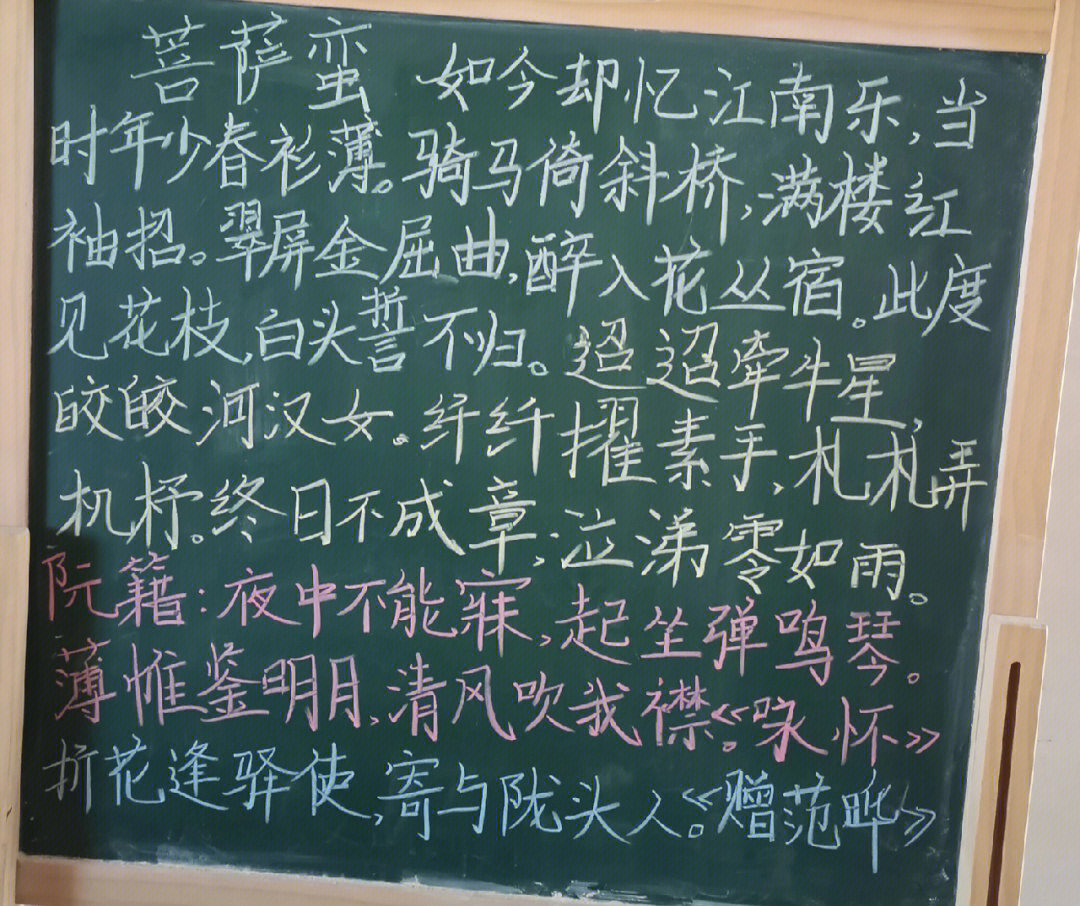 菩萨蛮 如今却忆江南乐,当
时年少春衫薄。骑马倚斜桥,满楼红
袖招。翠屏金屈曲,醉入花丛宿。此度
见花枝,白头誓不归。迢迢牵牛星,
皎皎河汉女。纤纤擢素手,札札弄
机杼。终日不成章,泣涕零如雨。
阮籍:夜中不能寐,起坐弹鸣琴。
薄帷鉴明月,清风吹我襟。《咏怀》
折花逢驿使,寄与陇头人。《赠范晔》